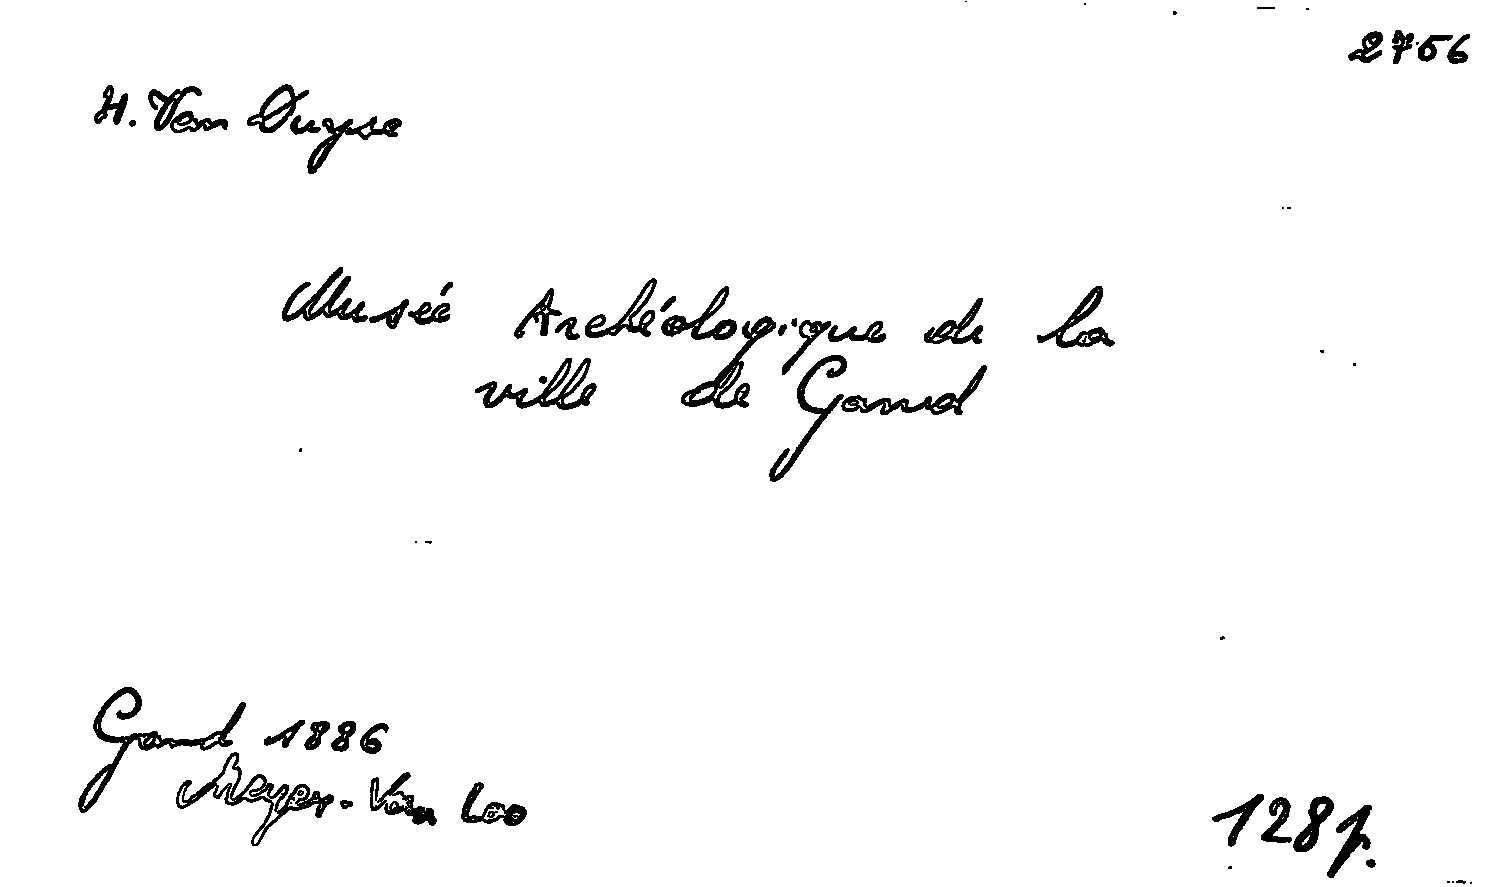 2756
H. Van Duyse
Musée Archéologique de la
ville de Gand
Gand 1886
Meyer-Van Loo
128 p.